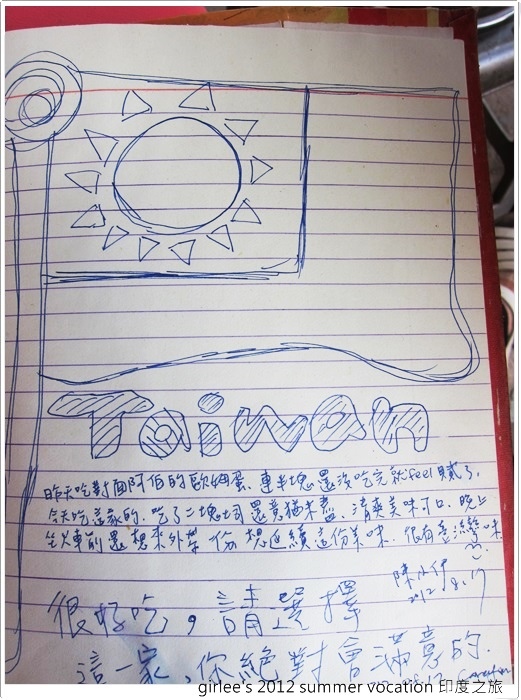 Taiwan
昨天吃對面阿伯的歐姆蛋、連半塊還沒吃完就feel膩了,
今天吃這家的,吃了二塊土司還意猶未盡、清爽美味可口、晚上
坐火車前還想來外帶一份,想延續這份美味、很有香濃味
2012.8.17
很好吃,請選擇
這一家,你絕對會滿意的.
girlee's 2012 summer vocation 印度之旅